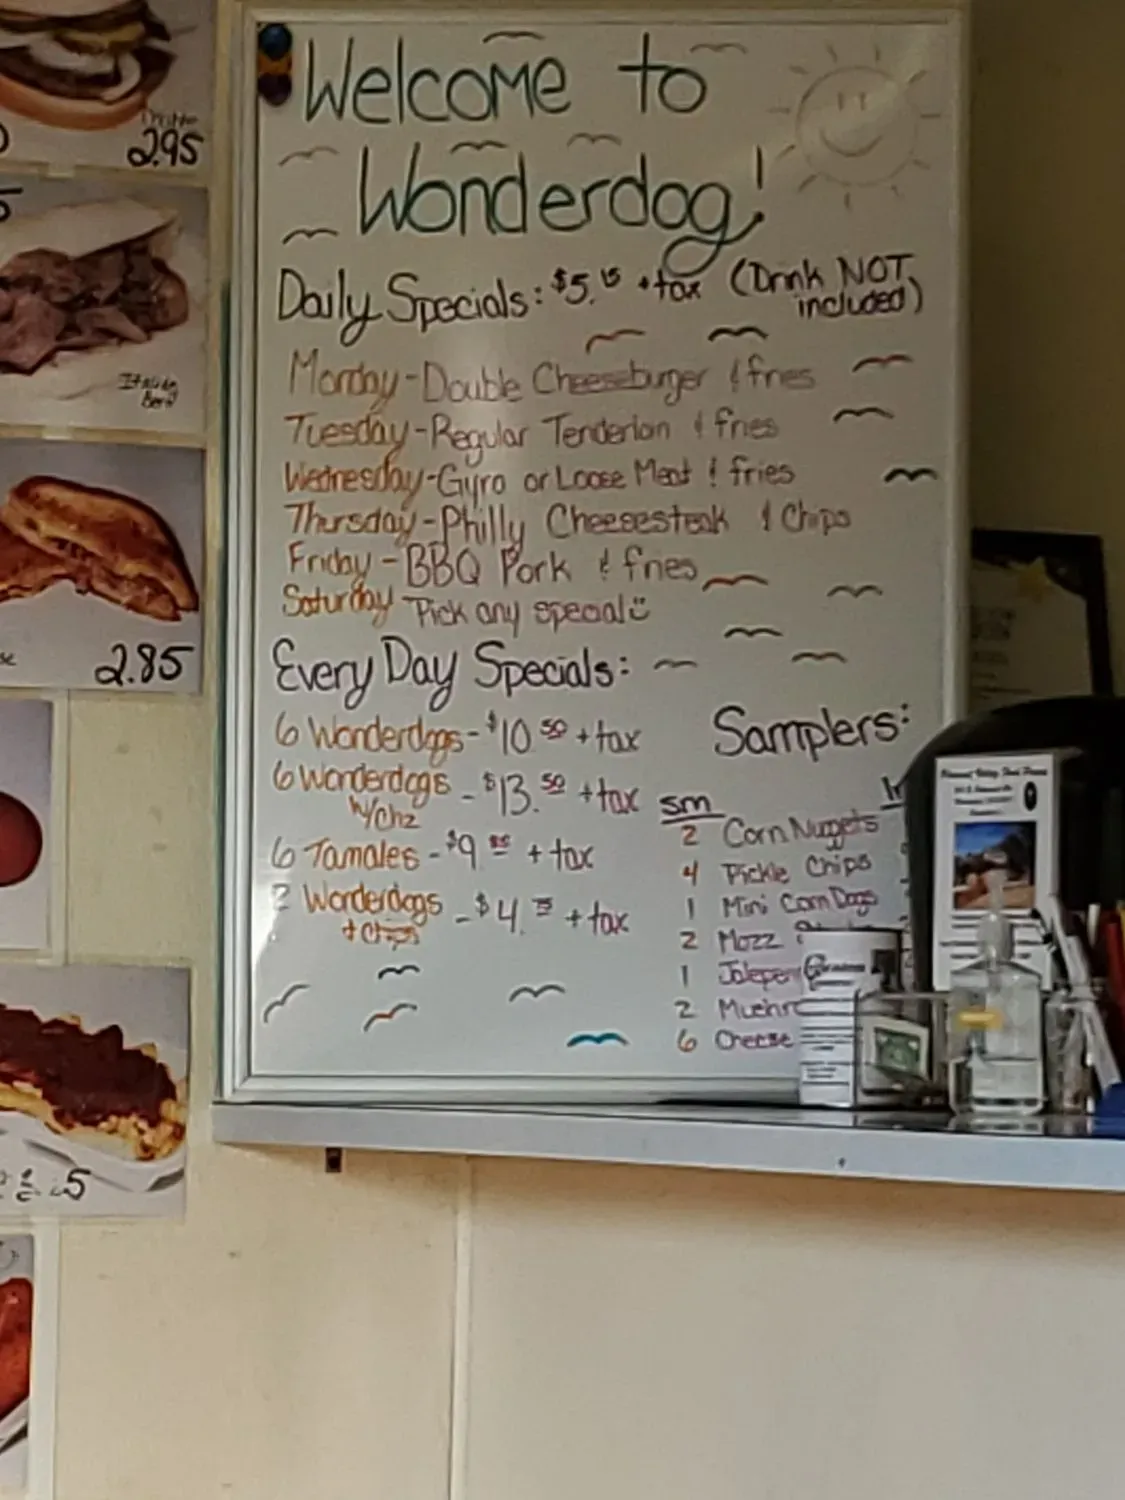 Welcome to
Wonderdog!
Daily Specials: $5.15 + tax (Drink NOT
included)
Monday - Double Cheeseburger & fries
Tuesday - Regular Tenderloin & fries
Wednesday - Gyro or Loose Meat & fries
Thursday - Philly Cheesesteak & Chips
Friday - BBQ Pork & fries
Saturday Pick any special
Every Day Specials:
6 Wonderdogs - $10.50 + tax
6 Wonderdogs - $13.50 + tax
w/Chz
6 Tamales - $9 + tax
Wonderdogs - $4 + tax
Samplers:
sm
2 Corn Nuggets
4 Pickle Chips
1 Mini Corn Dogs
2 Mozz
1 Jalepen
2 Mushro
6 Cheese
2.95
Italian
Beef
2.85